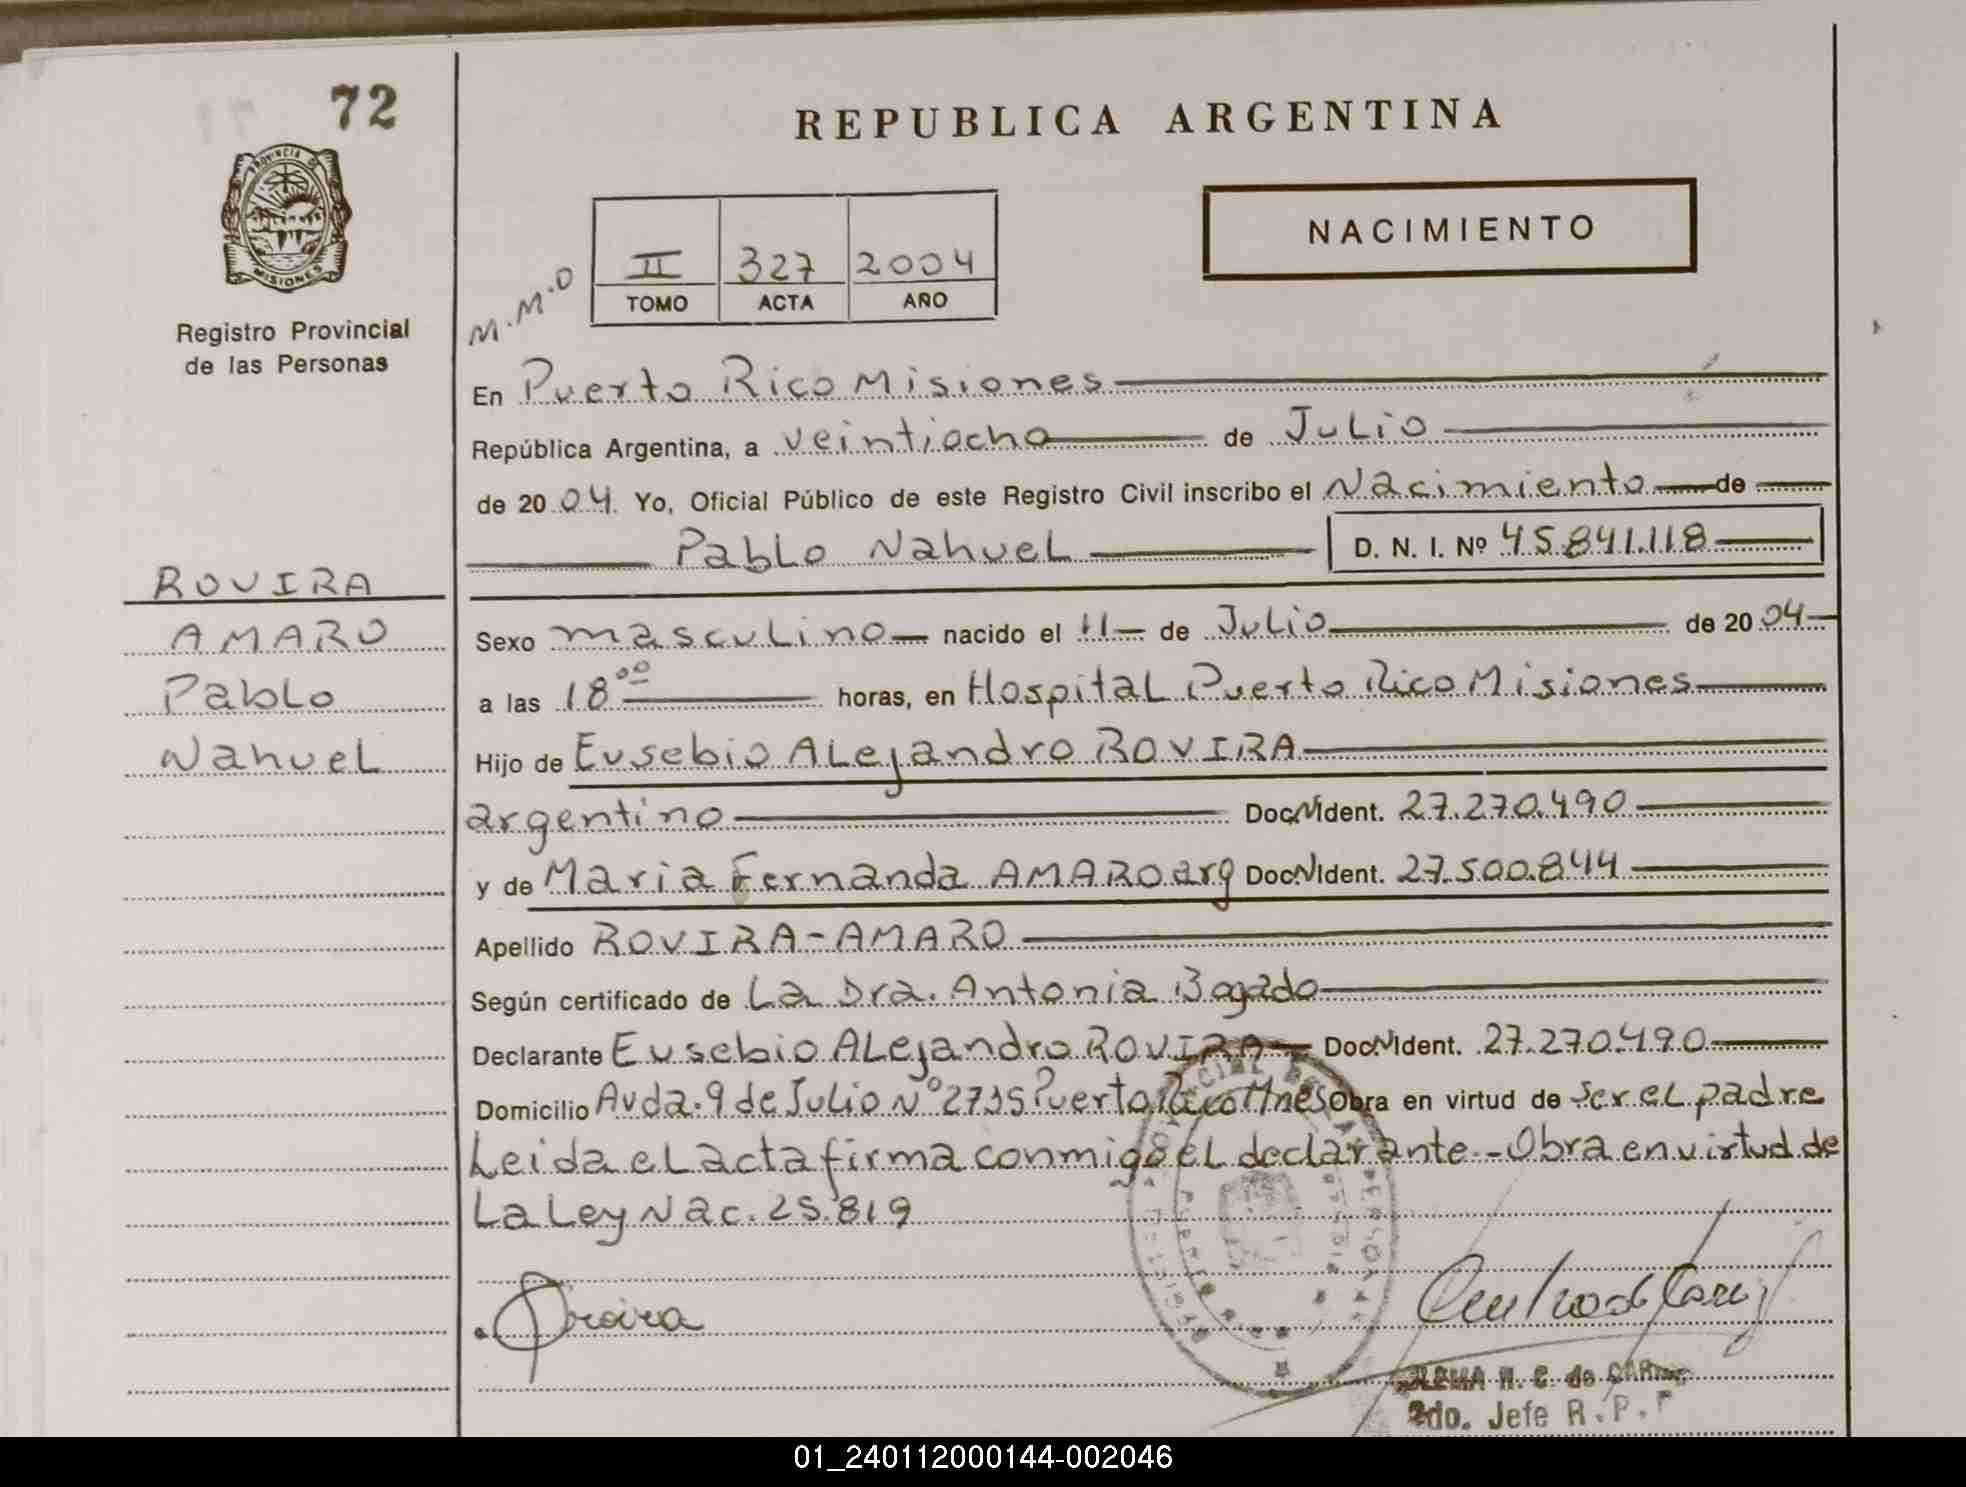 72
REPUBLICA ARGENTINA
PROVINCIA DE
MISIONES
Registro Provincial
de las Personas
NACIMIENTO
M.M.O
II 327 2004
TOMO ACTA AÑO
En Puerto Rico Misiones
República Argentina, a veintiocho de Julio
de 20 04. Yo, Oficial Público de este Registro Civil inscribo el Nacimiento de
Pablo Nahuel D. N. I. Nº 45.841.118
ROVIRA
AMARO
Pablo
Nahuel
Sexo masculino nacido el 11 de Julio de 20 04
a las 18 00 horas, en Hospital Puerto Rico Misiones
Hijo de Eusebio Alejandro ROVIRA
argentino Doc.N.Ident. 27.270.490
y de Maria Fernanda AMARO arg Doc.N.Ident. 27.500.844
Apellido ROVIRA-AMARO
Según certificado de La Dra. Antonia Bogado
Declarante Eusebio Alejandro ROVIRA Doc.N.Ident. 27.270.490
Domicilio Avda. 9 de Julio Nº 2735 Puerto Rico Mnes Obra en virtud de ser el padre
Leida el acta firma conmigo el declarante.-Obra en virtud de
La Ley Nac. 25.819
H. C. de
2do. Jefe R. P.
01_240112000144-002046